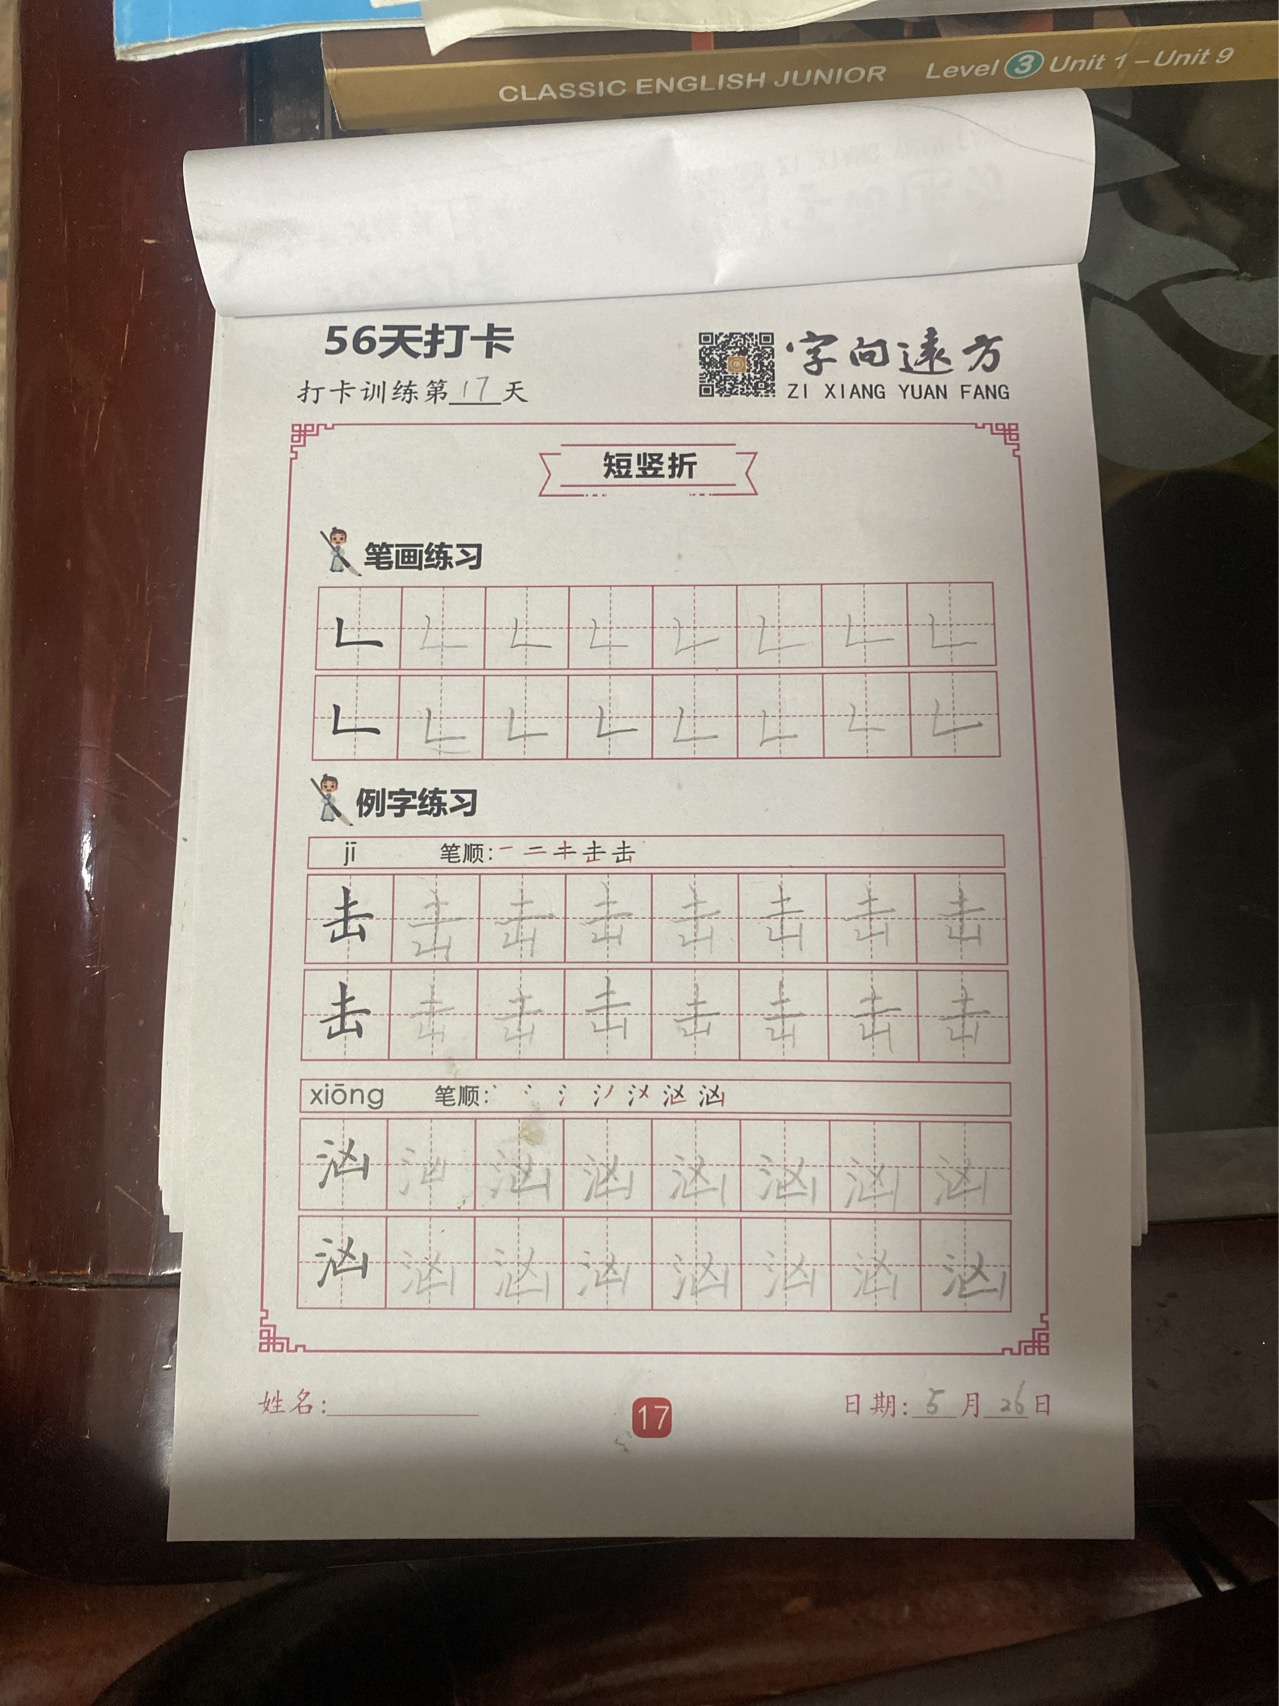 CLASSIC ENGLISH JUNIOR Level 3 Unit 1 – Unit 9
56天打卡
打卡训练第17天
字向远方
ZI XIANG YUAN FANG
短竖折
笔画练习
𠃊 𠃊 𠃊 𠃊 𠃊 𠃊 𠃊 𠃊
𠃊 𠃊 𠃊 𠃊 𠃊 𠃊 𠃊 𠃊
例字练习
jī 笔顺: 一 二 キ 击 击
击 击 击 击 击 击 击 击
击 击 击 击 击 击 击 击
xiōng 笔顺: 丶 冫 氵 汹
汹 汹 汹 汹 汹 汹 汹 汹
汹 汹 汹 汹 汹 汹 汹 汹
姓名:
17
日期: 5月26日